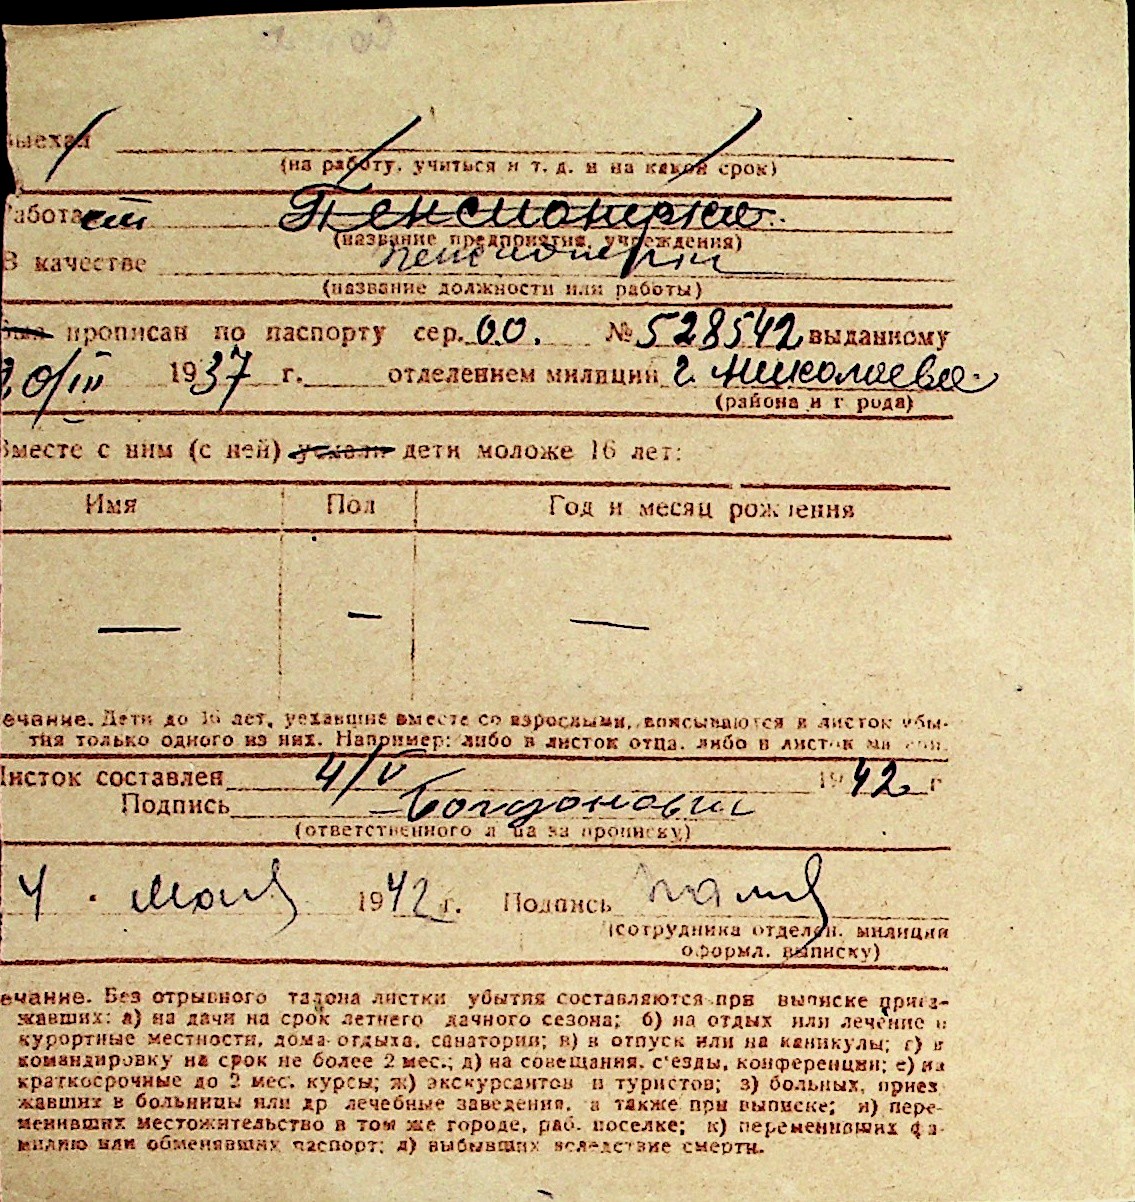 Выехал
(на работу, учиться и т. д. и на какой срок)
Работает Пенсионерка.
(название предприятия, учреждения)
В качестве пенсионерки
(название должности или работы)
был прописан по паспорту сер. 00. № 528542 выданному
20/III 1937 г. отделением милиции г. Николаева
(района и г рода)
Вместе с ним (с ней) уехали дети моложе 16 лет:
Имя Пол Год и месяц рождения
— — —
ечание. Дети до 16 лет, уехавшие вместе со взрослыми, вписываются в листок убы-
тия только одного из них. Например: либо в листок отца, либо в листок
Листок составлен 4/V 1942 г
Подпись Богданович
(ответственного лица за прописку)
4 . мая 1942 г. Подпись
(сотрудника отделен. милиции
оформл. выписку)
ечание. Без отрывного талона листки убытия составляются при выписке приез-
жавших: а) на дачи на срок летнего дачного сезона; б) на отдых или лечение в
курортные местности, дома отдыха, санатории; в) в отпуск или на каникулы; г) в
командировку на срок не более 2 мес.; д) на совещания, с'езды, конференции; е) на
краткосрочные до 2 мес. курсы; ж) экскурсантов и туристов; з) больных, приез
жавших в больницы или др лечебные заведения, а также при выписке; и) пере-
менивших местожительство в том же городе, раб. поселке; к) переменивших фа-
милию или обменявших паспорт; л) выбывших вследствие смерти.